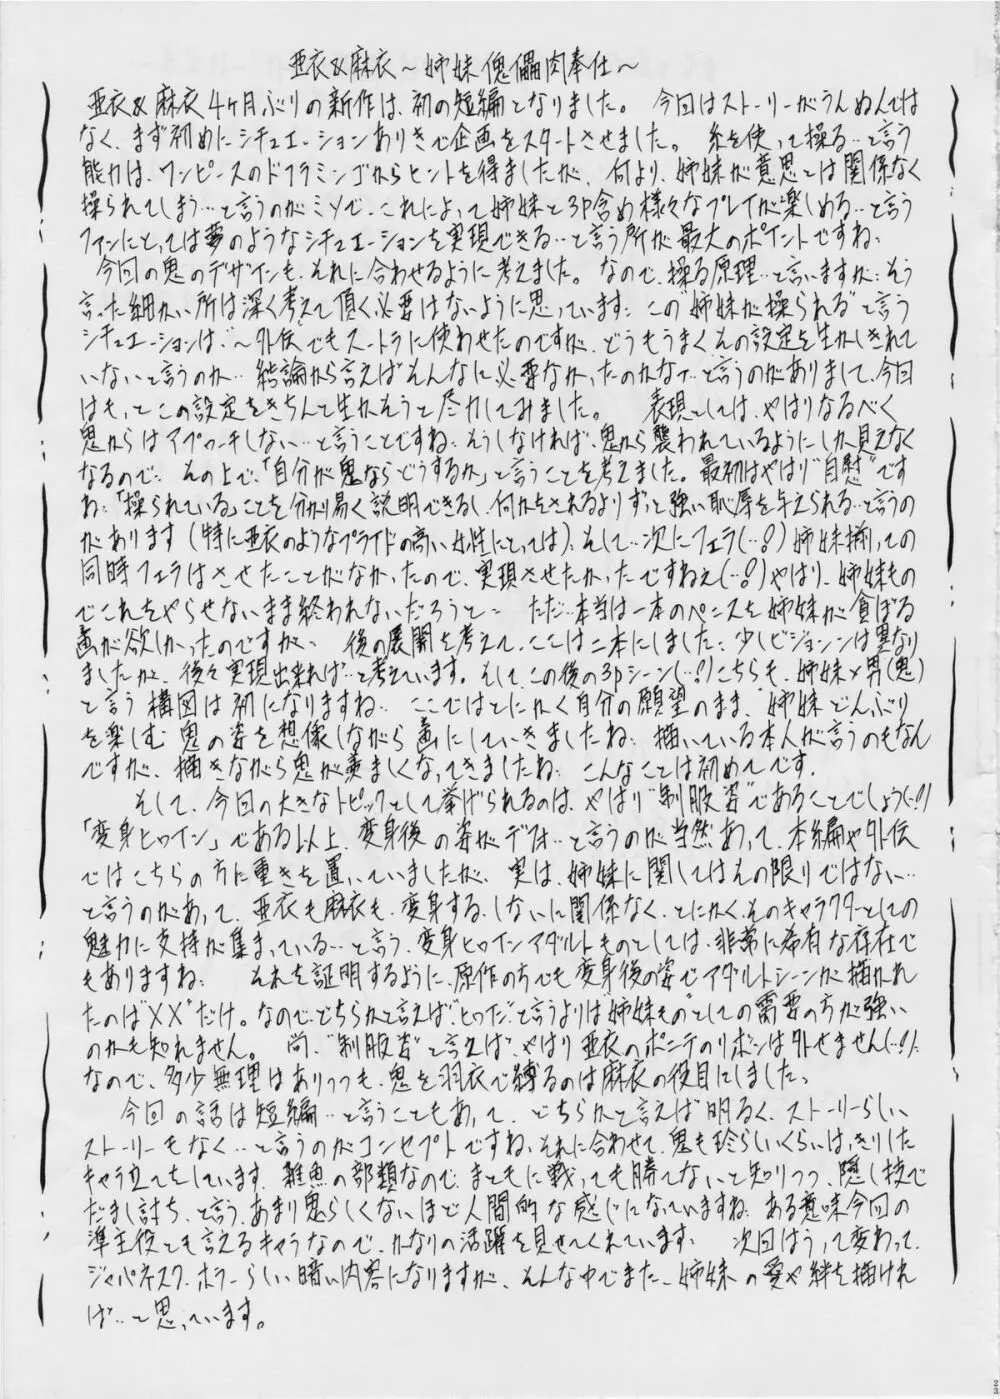 亜衣&麻衣～姉妹傀儡肉奉仕～
亜衣&麻衣4ヶ月ぶりの新作は、初の短編となりました。 今回はストーリーがうんぬんでは
なく、まず初めにシチュエーションありきで企画をスタートさせました。 糸を使って操る…と言う
能力は、ワンピースのドフラミンゴからヒントを得ましたが、何より、姉妹が意思とは関係なく
操られてしまう…と言うのがミソで、これによって姉妹と3P含め様々なプレイが楽しめる…と言う
ファンにとっては夢のようなシチュエーションを実現できる…と言う所が最大のポイントですね、
今回の鬼のデザインも、それに合わせるように考えました。なので、操る原理…と言いますか…そう
言った細かい所は深く考えて頂く必要はないように思っています… この"姉妹が操られる"と言う
シチュエーションは、～外伝でもスートラに使わせたのですが、どうもうまくその設定を生かしきれて
いないと言うのか… 結論から言えばそんなに必要なかったのかなァ…と言うのがありまして、今回
はもっとこの設定をきちんと生かそうと尽力してみました。 表現としては、やはりなるべく
鬼からはアプローチしない…と言うことですね… そうしなければ、鬼から襲われているようにしか見えなく
なるので… その上で、「自分が鬼ならどうするか」と言うことを考えました。最初はやはり"自慰"です
ね…「操られている」ことを分かり易く説明できるし、何かをされるよりずっと強い恥辱を与えられる…と言うの
があります(特に亜衣のようなプライドの高い女性にとっては)… そして…次にフェラ(…!?) 姉妹揃っての
同時フェラはさせたことがなかったので、実現させたかったですねぇ(…!?)やはり、姉妹もの
でこれをやらせないまま終われないだろうと… ただ…本当は一本のペニスを姉妹が貪ぼる
画が欲しかったのですが、 後の展開を考えて、ここは二本にしました… 少しビジョンは異なり
ましたが、後々実現出来れば…と考えています。そして、この後の3Pシーン(…!?)こちらも、姉妹×男(鬼)
と言う構図は初になりますね… ここではとにかく自分の願望のまま、姉妹どんぶり
を楽しむ鬼の姿を想像しながら画にしていきましたね… 描いている本人が言うのもなん
ですが、描きながら鬼が羨ましくなってきましたね… こんなことは初めてです。
そして、今回の大きなトピックとして挙げられるのは、やはり"制服姿"であることでしょう(…!?)
「変身ヒロイン」である以上、変身後の姿がデフォ…と言うのが当然あって、本編や外伝
ではこちらの方に重きを置いていましたが、実は、姉妹に関してはその限りではない…
と言うのがあって、亜衣も麻衣も、変身する、しないに関係なく、とにかく、そのキャラクターとしての
魅力に支持が集まっている…と言う、変身ヒロインアダルトものとしては、非常に希有な存在で
もありますね… それを証明するように、原作の方でも変身後の姿でアダルトシーンが描かれ
たのは"××"だけ。なので、どちらかと言えば"ヒロイン"と言うよりは"姉妹もの"としての需要の方が強い
のかも知れません。 尚、"制服姿"と言えば、やはり亜衣のポニテのリボンは外せません(…!?)、
なので、多少無理はありつつも、鬼を羽衣で縛るのは麻衣の役目にしました、
今回の話は短編…と言うこともあって、どちらかと言えば明るく、ストーリーらしい
ストーリーもなく…と言うのがコンセプトですね、それに合わせて、鬼も珍らしいくらいはっきりした
キャラ立てをしています、雑魚の部類なので、まともに戦っても勝てないと知りつつ、隠し技で
だまし討ち、と言う、あまり鬼らしくないほど人間的な感じになっていますね… ある意味今回の
準主役とも言えるキャラなので、かなりの活躍を見せてくれています、 次回はうって変わって、
ジャパネスク・ホラーらしい暗い内容になりますが、そんな中でまた、姉妹の愛や絆を描けれ
ば…と思っています。